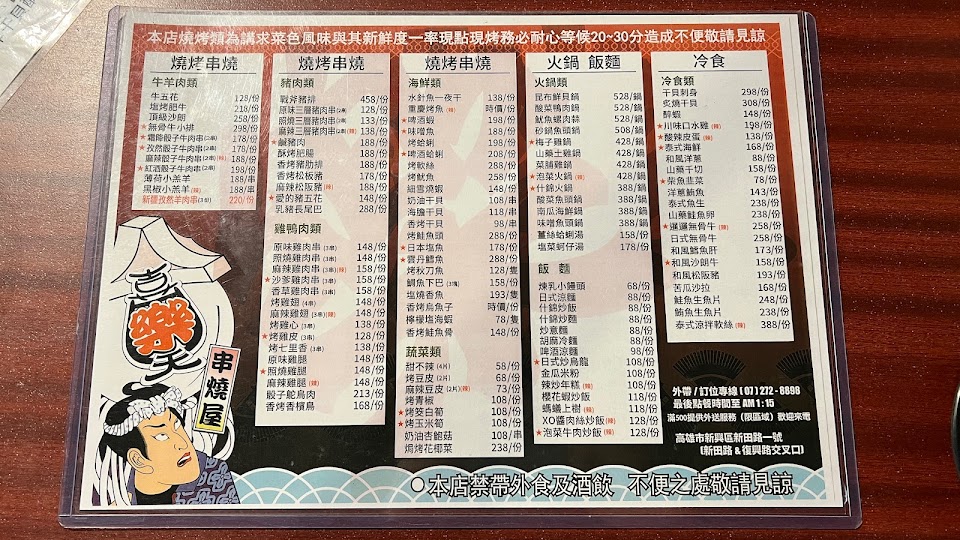 本店燒烤類為講求菜色風味與其新鮮度一率現點現烤務必耐心等候20~30分造成不便敬請見諒
燒烤串燒
牛羊肉類
牛五花 128/份
塩烤肥牛 218/份
頂級沙朗 258/份
★無骨牛小排 298/份
★霜降骰子牛肉串(2串) 178/份
★孜然骰子牛肉串(2串) 178/份
麻辣骰子牛肉串(2串)(辣) 188/份
★紅酒骰子牛肉串(2串) 198/份
薄荷小羔羊 188/串
黑椒小羔羊(辣) 188/串
新疆孜然羊肉串(3份) 220/份
燒烤串燒
豬肉類
戰斧豬排 458/份
原味三層豬肉串(2串) 128/份
照燒三層豬肉串(2串) 133/份
麻辣三層豬肉串(2串)(辣) 138/份
★鹹豬肉 188/份
酥烤肥腸 188/份
香烤豬肋排 188/份
香烤松板豬 178/份
麻辣松阪豬(辣) 188/份
★愛的豬五花 148/份
乳豬長尾巴 288/份
雞鴨肉類
原味雞肉串(3串) 148/份
照燒雞肉串(3串) 148/份
麻辣雞肉串(3串)(辣) 158/份
★沙爹雞肉串(3串) 158/份
香草雞肉串(3串) 158/份
烤雞翅(4串) 148/份
麻辣雞翅(3串)(辣) 148/份
烤雞心(3串) 138/份
★烤雞皮(3串) 128/份
烤七里香(3串) 138/份
原味雞腿 148/份
★照燒雞腿 148/份
麻辣雞腿(辣) 148/份
骰子鴕鳥肉 213/份
香烤香檳鳥 168/份
燒烤串燒
海鮮類
水針魚一夜干 138/份
重慶烤魚(辣) 時價/份
★啤酒蝦 198/份
★味噌魚 188/份
烤蛤蜊 198/份
★啤酒蛤蜊 208/份
烤軟絲 288/份
烤魷魚 258/份
細雪燒蝦 148/份
奶油干貝 108/串
海膽干貝 118/串
香烤干貝 98/串
烤鮭魚頭 288/份
★日本塩魚 178/份
★雲丹鱈魚 288/份
烤秋刀魚 128/隻
鯛魚下巴(3塊) 158/份
塩燒香魚 193/隻
香烤烏魚子 時價/份
檸檬塩海蝦 78/隻
香烤鮭魚骨 148/份
蔬菜類
甜不辣(4片) 58/份
烤豆皮(2片) 68/份
麻辣豆皮(2片)(辣) 73/份
烤青椒 108/份
★烤筊白筍 108/份
★烤玉米筍 108/份
奶油杏鮑菇 108/串
焗烤花椰菜 238/份
火鍋 飯麵
火鍋類
昆布鮮貝鍋 528/鍋
酸菜鴨肉鍋 528/鍋
魷魚螺肉蒜 528/鍋
砂鍋魚頭鍋 508/鍋
★梅子雞鍋 428/鍋
山藥土雞鍋 428/鍋
菜脯雞鍋 428/鍋
★泡菜火鍋(辣) 388/鍋
★什錦火鍋 388/鍋
酸菜魚頭鍋 388/鍋
南瓜海鮮鍋 388/鍋
味噌魚頭鍋 388/鍋
薑絲蛤蜊湯 158/份
塩菜蚵仔湯 178/份
飯 麵
煉乳小饅頭 68/份
日式涼麵 88/份
什錦炒飯 88/份
什錦炒麵 88/份
炒意麵 88/份
胡麻冷麵 88/份
啤酒涼麵 98/份
★日式炒烏龍 108/份
金瓜米粉 108/份
辣炒年糕(辣) 108/份
櫻花蝦炒飯 118/份
螞蟻上樹(辣) 118/份
XO醬肉絲炒飯(辣) 128/份
★泡菜牛肉炒飯(辣) 128/份
冷食
冷食類
干貝刺身 298/份
炙燒干貝 308/份
醉蝦 148/份
★川味口水雞(辣) 198/份
★酸辣皮蛋(辣) 138/份
★泰式海鮮 168/份
和風洋蔥 88/份
山藥干切 158/份
★柴魚韭菜 78/份
洋蔥鮪魚 143/份
泰式魚生 238/份
山藥鮭魚卵 238/份
★邋遢無骨牛(辣) 258/份
日式無骨牛 258/份
和風鱈魚肝 173/份
★和風沙朗牛 158/份
和風松阪豬 193/份
苦瓜沙拉 168/份
鮭魚生魚片 248/份
鮪魚生魚片 238/份
泰式涼拌軟絲(辣) 388/份
喜樂天
串燒屋
外帶/訂位專線(07)272-8898
最後點餐時間至 AM1:15
滿500提供外送服務(限區域)歡迎來電
高雄市新興區新田路一號
(新田路&復興路交叉口)
○本店禁帶外食及酒飲 不便之處敬請見諒